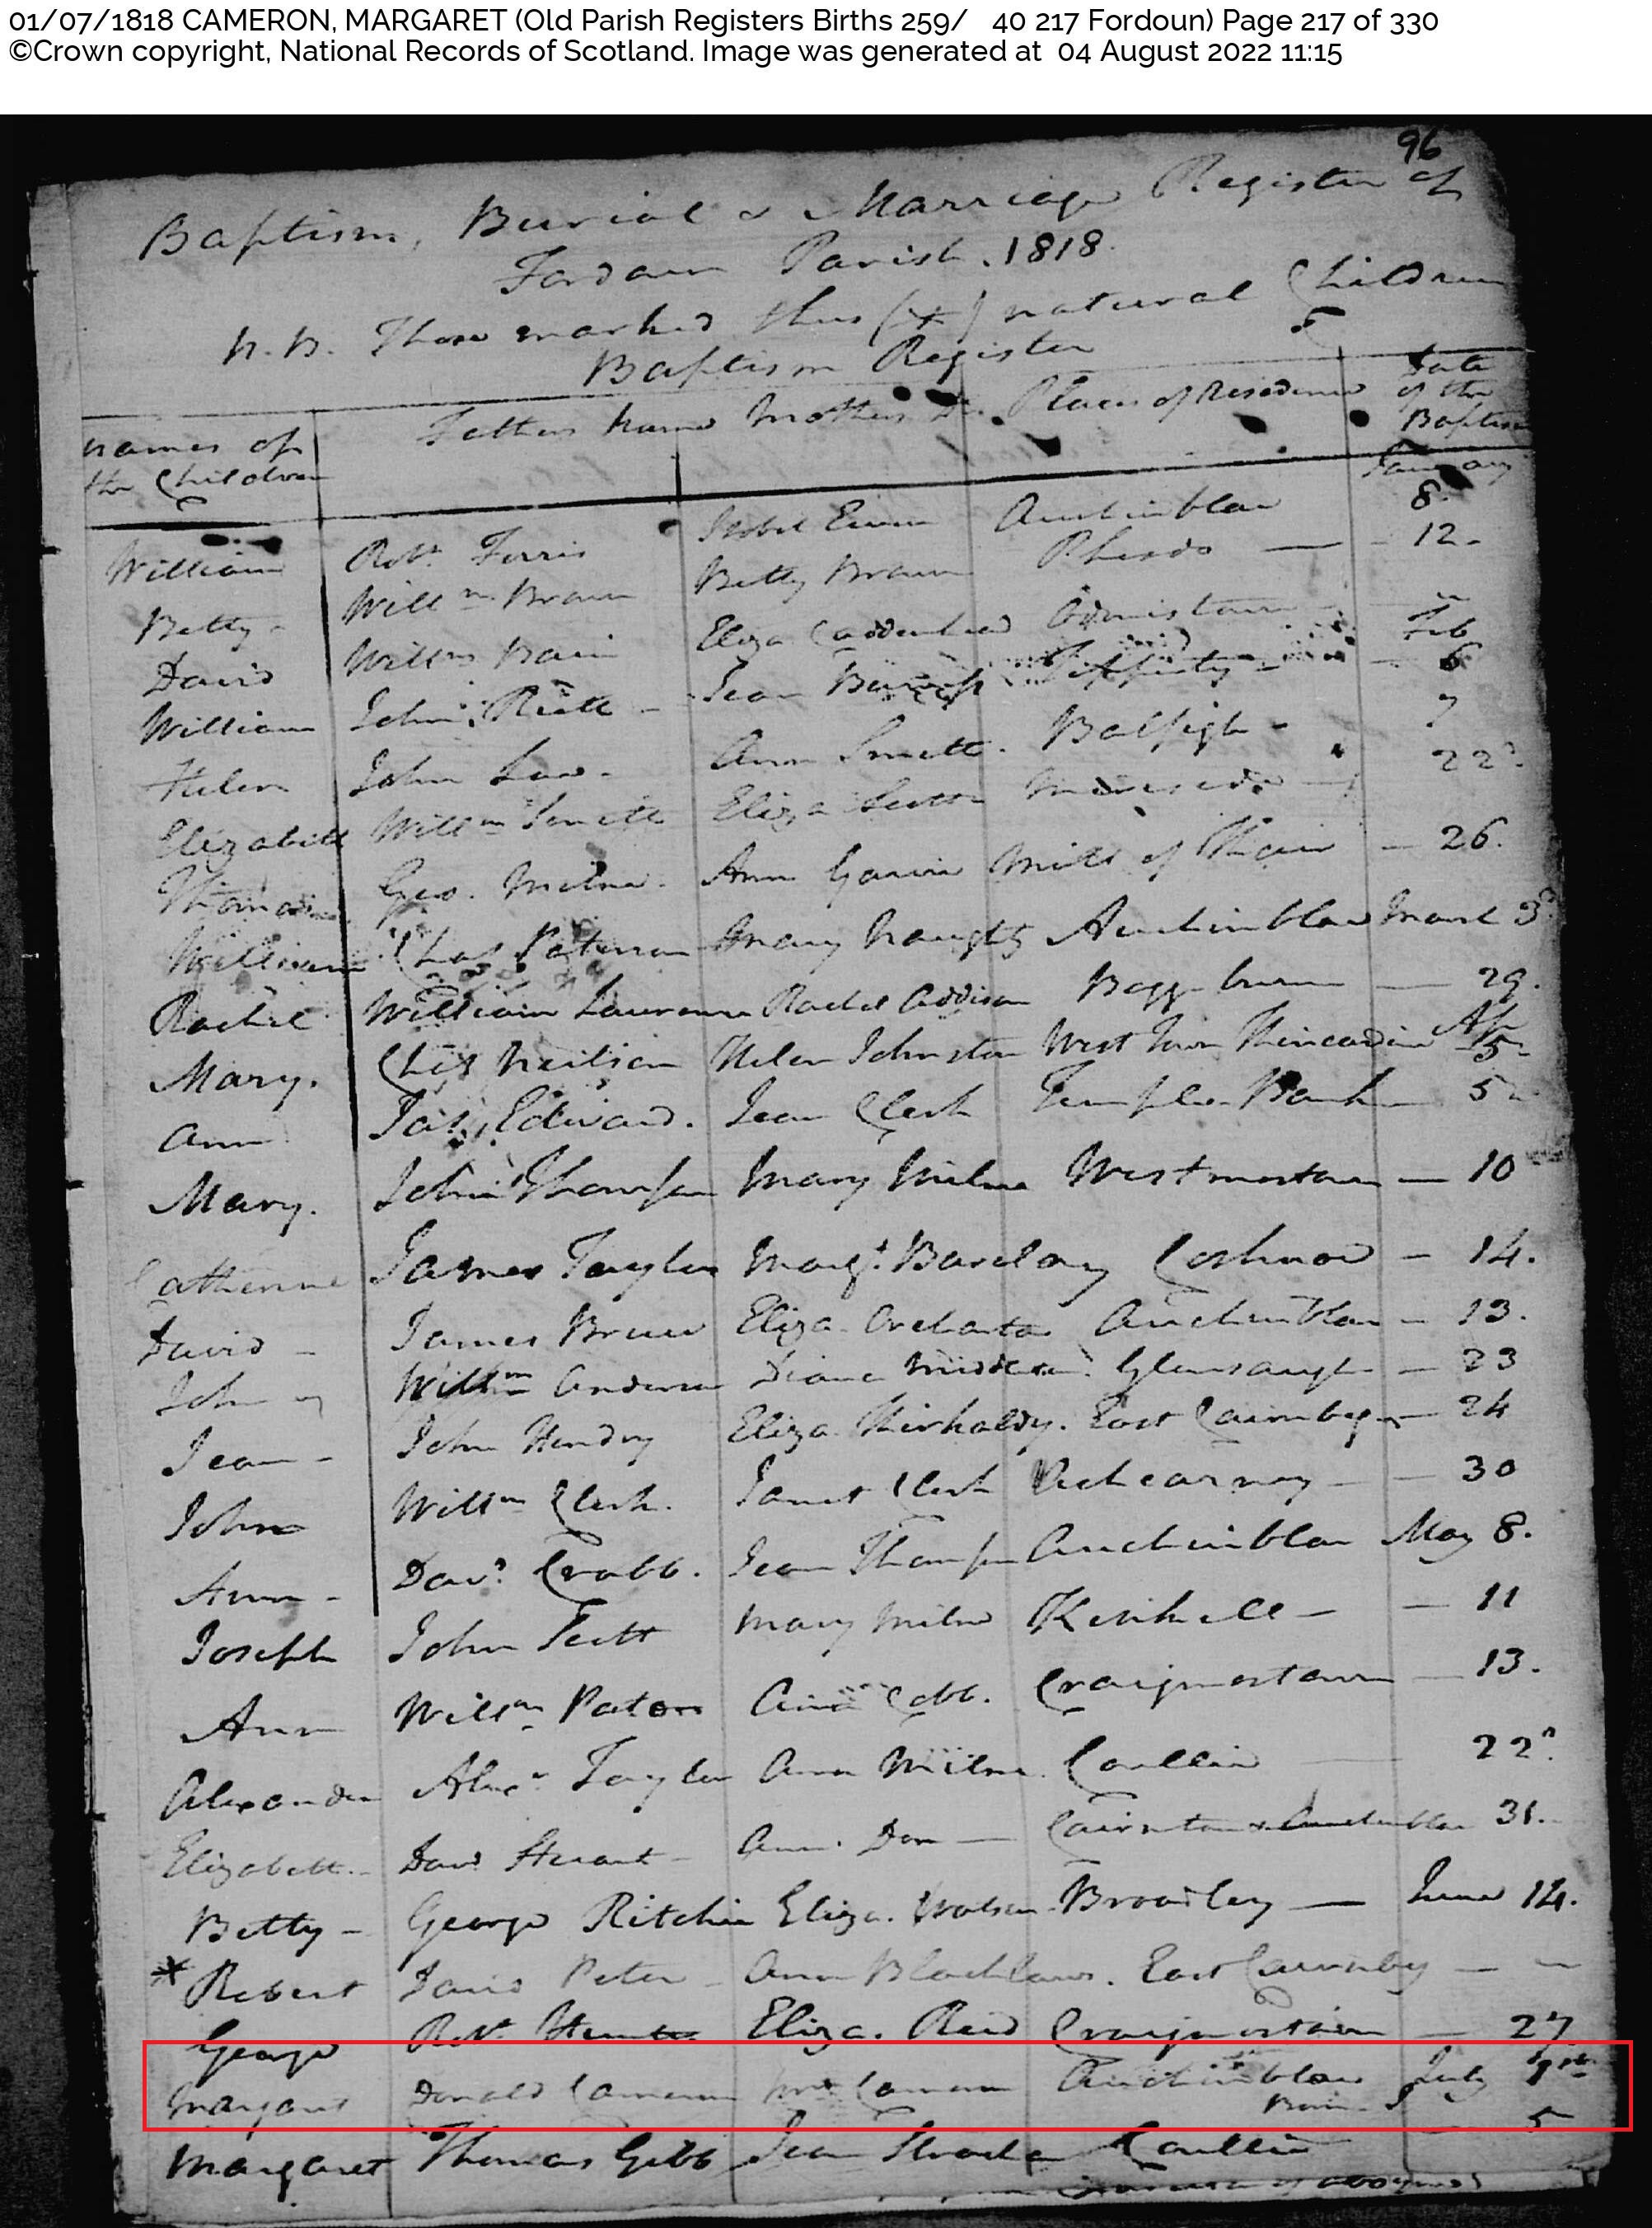 01/07/1818 CAMERON, MARGARET (Old Parish Registers Births 259/ 40 217 Fordoun) Page 217 of 330
©Crown copyright, National Records of Scotland. Image was generated at 04 August 2022 11:15
96
Baptism, Burial & Marriage Register of
Fordoun Parish. 1818.
N.B. Those marked thus (+) natural Children
Baptism Register
names of the Children Fathers name Mothers Do. Places of Residence Date of the Baptism
January
William Robt. Ferris Isobel Auchinblae 8.
Betty - Willm Brown Betty Brown Phesdo — - 12.
David Willm Bain Eliza Caddenhead "
Feb
William John - Jean - 6
Helen John Law - Ann Smith. Balfeigh - 7
Elizabeth Willm Smith Eliza 22d
Thomas Geo. Milne. Ann Gavin Mill of — 26.
William Chas Paterson Mary Auchinblae March 3d
Rachel William Lawrence Rachel Addison Boggburn — 29.
Mary. Neilson Helen Johnston West Town Kincardine Ap 5
Ann Jas. Edward. Jean Clerk Temple Bank — 5
Mary. John Thomson Mary Milne Westmostoun — 10
Catherine James Taylor Margt. Barclay — 14.
David - James Bruce Eliza Auchinblae — 13.
John Willm Anderson Diana Middleton. Glensaugh — 23
Jean - John Hendry Eliza Kirkaldy. East Cairnbeg — 24
John Willm Clerk. Janet Clerk Pitcarry — — 30
Ann - Davd. Crabb. Jean Thomson Auchinblae May 8.
Joseph John Scott Mary Milne Kirkhill — — 11
Ann Willm Paton Cobb. Craigmostoun — 13.
Alexander Alexr Taylor Ann Milne. Coullie 22d.
Elizabeth. - Davd Stewart - Ann Don — Cairnton & Auchinblae 31.
Betty - George Ritchie Eliza. Watson Broadley — June 14.
* Robert David Peter - Ann Blacklaws. East Cairnbeg — "
George Robt. Hunter Eliza. Reid Craigmostoun — 27
Margaret Donald Cameron Cameron Auchinblae July 1st
Born
Margaret Thomas Gibb Jean Coullie — 5